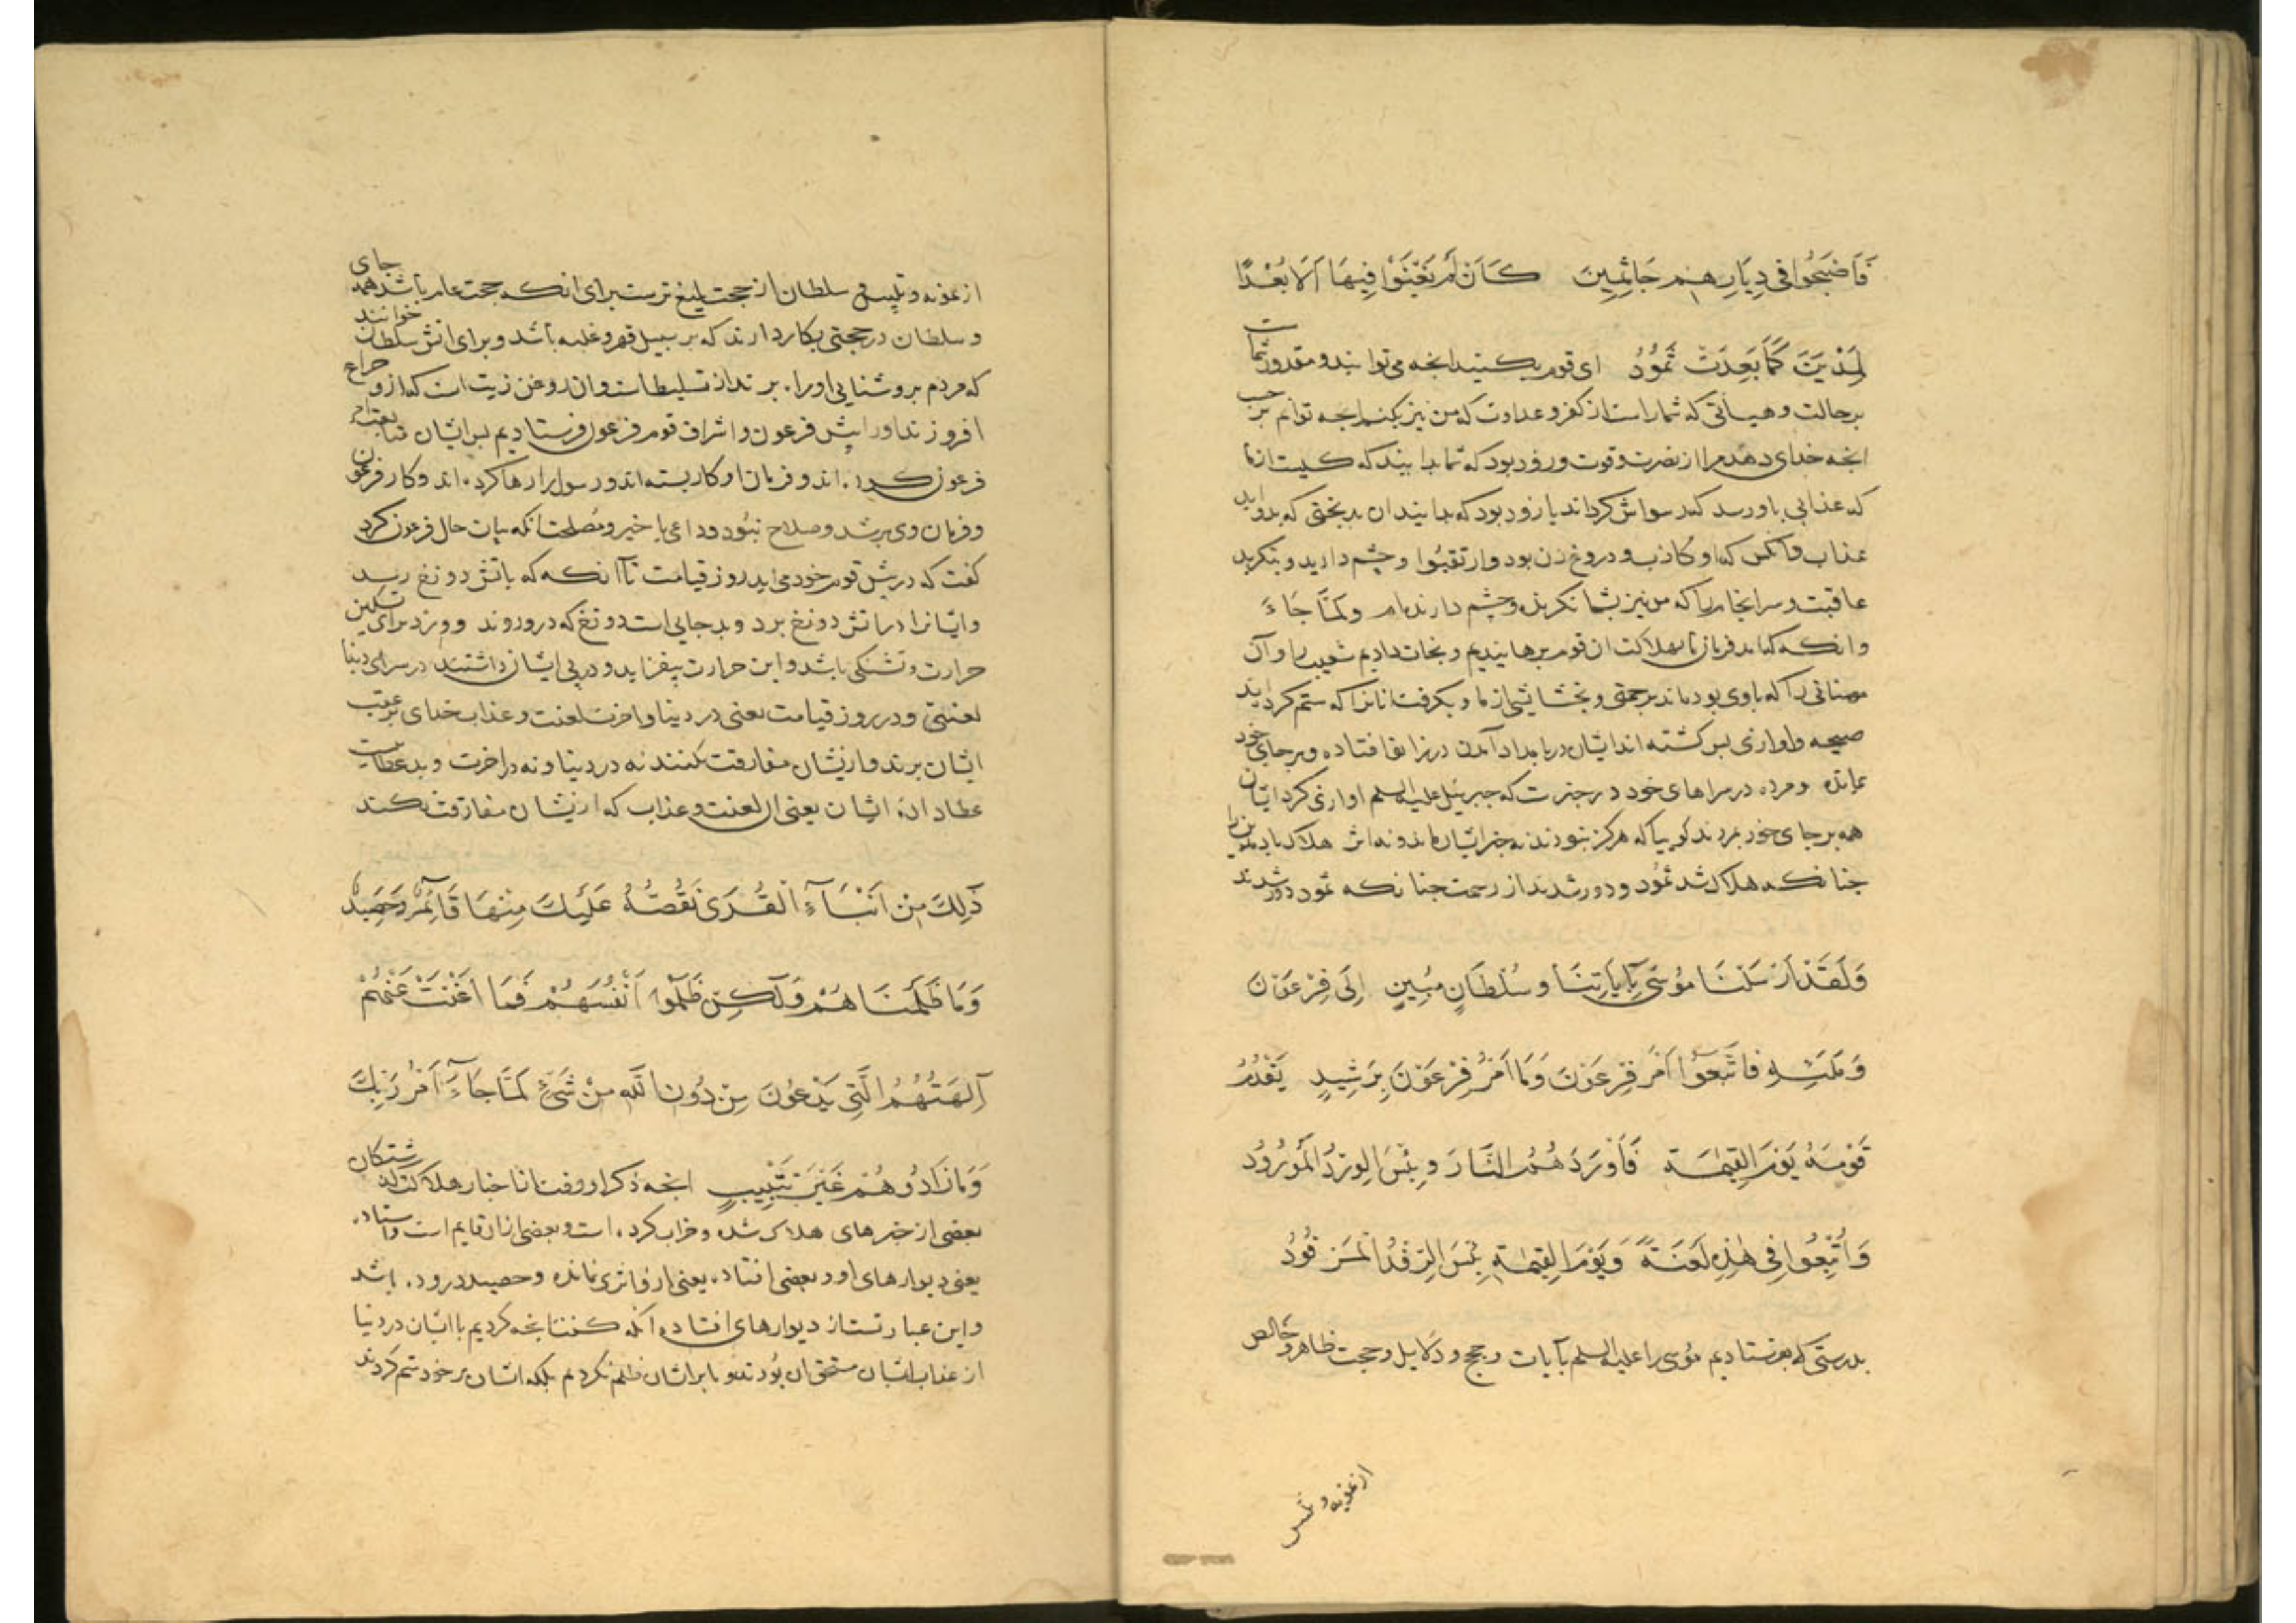 فَاَصْبَحُوا فِي دِيَارِهِمْ جَاثِمِينَ كَاَنْ لَمْ يَغْنَوْا فِيهَا اَلَا بُعْدًا
لِمَدْيَنَ كَمَا بَعِدَتْ ثَمُوُدُ ای قوم بکنید انجه می توانید و مقدور شماست
بر حالت و هیأتی که شما راست از کفر و عداوت که من نیز بکنم انجه توانم بر حسب
انجه خدای دهد مرا از نصرت و قوت و زود بود که شما بدانید که کیست از ما
که عذابی باو رسد که رسواش کرداند یا زود بود که بدانید ان بدبختی که بدو اید
عذاب و آنکس که او کاذب و دروغ زن بود وارتقبُوا و چشم دارید و بنکرید
عاقبت و سرانجام را که من نیز بشما نکرنده و چشم دارنده‌ام ولَمَّا جَاءَ
وانکه که امد فرمان ما بهلاکت ان قوم برهانیدیم و نجات دادیم شعیب را و آن
مومنانی را که با وی بودند برحمتی و بخشایشی از ما و بکرفت انانرا که ستم کردند
صیحه و اوازی بس کشته اند ایشان در بامداد آمدن در بزانو افتاده و بر جای خود
بمانده و مرده در سراهای خود در خبرست که جبرئیل علیه السلم اوازی کرد ایشان
همه بر جای خود بمردند کوییا که هرکز نبودند نه خبر ایشان ماند و نه اثر هلاک باد مدین را
جنانکه هلاک شد ثمُود و دور شدند از رحمت جنانکه ثمود دور شدند
وَلَقَدْ اَرْسَلْنَا مُوُسَى بِآيَاتِنَا وسُلْطَانٍ مُبِينٍ اِلَى فِرْعَوْنَ
وَمَلَئِهِ فَاتَّبَعُوا اَمْرَ فِرْعَوْنَ وَمَا اَمْرُ فِرْعَوْنَ بِرَشِيدٍ يَقْدُمُ
قَوْمَهُ يَوْمَ القِيٰمَةِ فَاَوْرَدَهُمُ النَّارَ وبِئْسَ الْوِرْدُ الْمَوْرُودُ
وَاُتْبِعُوا فِي هٰذِهِ لَعْنَةً وَيَوْمَ القِيٰمَةِ بِئْسَ الرِّفْدُ الْمَرْفُودُ
بدرستی که بفرستادیم موسی را علیه السلم بآیات و حجج و دلایل و حجت ظاهر و خالص
از تمویه و تلبیس
از تمویه و تلبیس و سلطان از حجت بلیغ ترست برای انکه حجت عام باشد همه جای
و سلطان در حجتی بکار دارند که بر سبیل قهر و غلبه باشد و برای انش سلطان خوانند
که مردم بروشنایی او راه برند از تسلیط است و ان روغن زیت است که ازو چراغ
افروزند او را پیش فرعون و اشراف قوم فرعون فرستادیم بس ایشان متابعت
فرعون کرده اند و فرمان او کار بسته اند و رسول را رها کرده اند و کار فرعون
و فرمان وی برشد و صلاح نبُود و داعی با خیر و مُصلحت انکه بیان حال فرعون کرد
کفت که در پیش قوم خود می اید روز قیامت تا آنکه که باتش دوزخ رسد
و ایشانرا در اتش دوزخ برد و بد جایی است دوزخ که درو روند و ورد برای تسکین
حرارت و تشنکی باشد و این حرارت بیفزاید و در پی ایشان داشتند در سرای دنیا
لعنتی و در روز قیامت یعنی در دنیا و اخرت لعنت و عذاب خدای بر عقب
ایشان برند و ازیشان مفارقت نکنند نه در دنیا و نه در اخرت و بد عطاییست
عطا داده ایشان یعنی ان لعنت و عذاب که ازیشان مفارقت نکند
ذَلِكَ مِنْ اَنْبَاءِ الْقُرَى نَقُصُّهُ عَلَيْكَ مِنْهَا قَائِمٌ وَحَصِيدٌ
وَمَا ظَلَمْنَاهُمْ وَلٰكِنْ ظَلَمُوا اَنْفُسَهُمْ فَمَا اَغْنَتْ عَنْهُمْ
آلِهَتُهُمُ الَّتِي يَدْعُونَ مِنْ دُونِ اللَّهِ مِنْ شَيْءٍ لَمَّا جَاءَ اَمْرُ رَبِّكَ
وَمَا زَادُوهُمْ غَيْرَ تَتْبِيبٍ انجه ذکر او رفت از اخبار هلاکت کذشتکان
بعضی از خبرهای هلاک شده و خراب کرده است و بعضی ازان قایم است و استاده
یعنی دیوارهای او و بعضی افتاده یعنی از و اثری نمانده و حصید دروده باشد
و این عبارتست از دیوارهای افتاده آنکه کفت انجه کردیم با ایشان در دنیا
از عذاب ایشان مستحق ان بُودند و ما بر ایشان ظلم نکردیم بلکه ایشان بر خود ستم کردند